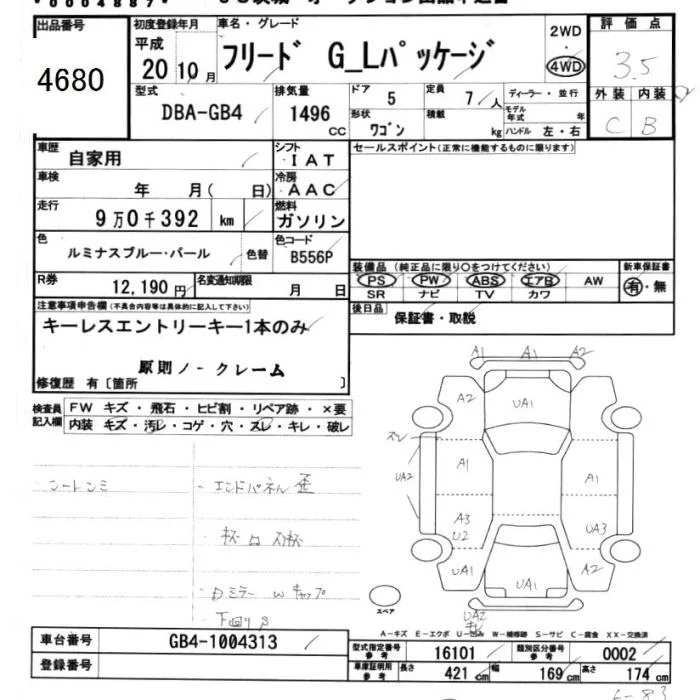 00004887
出品番号
4680
初度登録年月
平成
20 10月
車名・グレード
フリード G_Lパッケージ
2WD
・
4WD
評価点
3.5
外装 内装
C B
型式
DBA-GB4
排気量
1496
CC
ドア
5
定員
7人
形状
ワゴン
積載
kg
ディーラー・並行
モデル年式 年
ハンドル 左・右
車歴
自家用
シフト
IAT
車検
年 月( 日)
冷房
AAC
走行
9万0千392 km
燃料
ガソリン
色
ルミナスブルー・パール
色替
色コード
B556P
R券
12,190円
名変通知期限
月 日
セールスポイント(正常に機能するものに限ります)
装備品(純正品に限り○をつけてください)
PS PW ABS エアB AW
SR ナビ TV カワ
新車保証書
有・無
後日品
保証書・取説
注意事項申告欄(不具合内容等は具体的に記入して下さい)
キーレスエントリーキー1本のみ
原則ノークレーム
修復歴 有〔箇所 〕
検査員記入欄
FW キズ・飛石・ヒビ割・リペア跡・×要
内装 キズ・汚レ・コゲ・穴・スレ・キレ・破レ
・シートシミ
・エンドパネル歪
下回りS
A1 A1 A2
A2 UA1
スレ
UA2
A1 A1
A3
U2
UA3
UA1 UA1 A2
UA2
スペア
A-キズ E-エクボ U-凹み W-補修跡 S-サビ C-腐食 XX-交換済
車台番号
GB4-1004313
登録番号
型式指定番号
参考
16101
類別区分番号
参考
0002
車庫証明用
参考
長さ 421 cm 幅 169 cm 高さ 174 cm
6-83